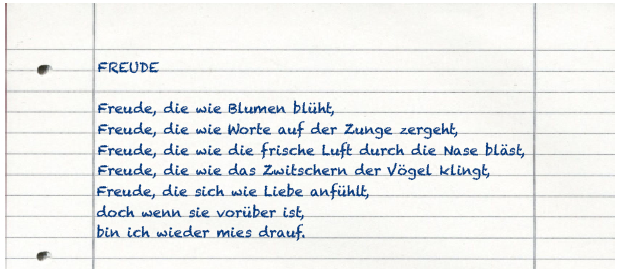 FREUDE
Freude, die wie Blumen blüht,
Freude, die wie Worte auf der Zunge zergeht,
Freude, die wie die frische Luft durch die Nase bläst,
Freude, die wie das Zwitschern der Vögel klingt,
Freude, die sich wie Liebe anfühlt,
doch wenn sie vorüber ist,
bin ich wieder mies drauf.